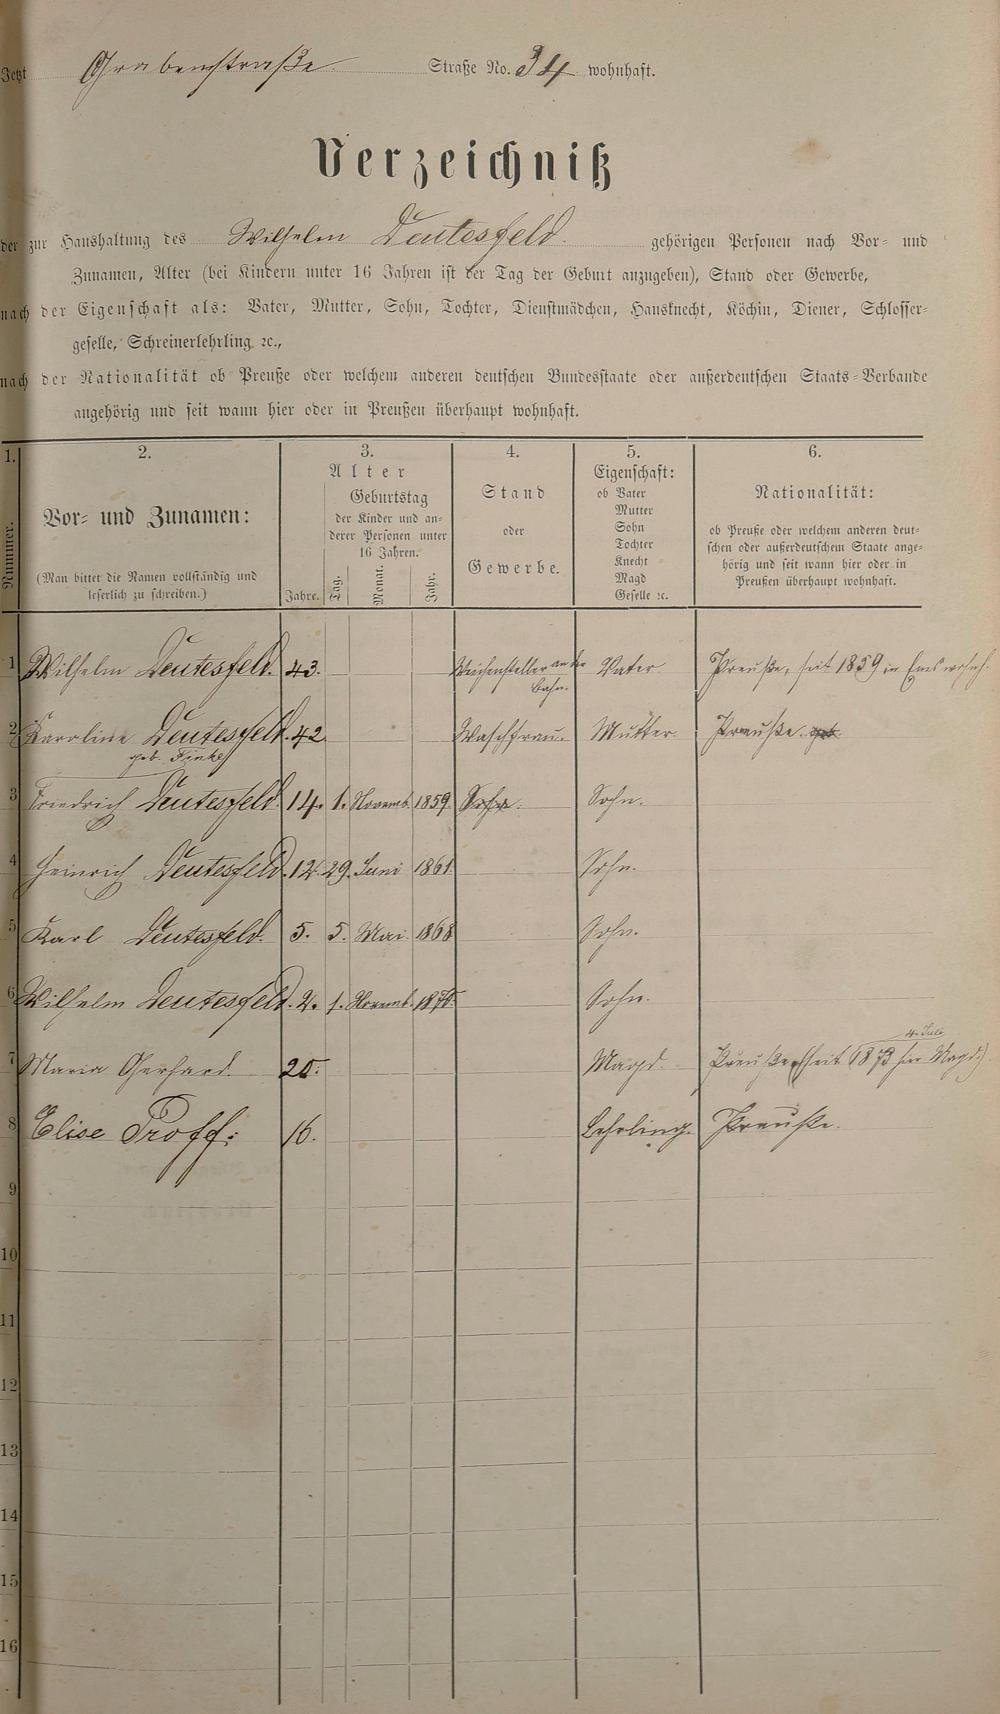 Jetzt Grabenstraße Straße No. 34 wohnhaft.
Verzeichniß
der zur Haushaltung des Wilhelm Deutesfeld. gehörigen Personen nach Vor- und
Zunamen, Alter (bei Kindern unter 16 Jahren ist der Tag der Geburt anzugeben), Stand oder Gewerbe,
nach der Eigenschaft als: Vater, Mutter, Sohn, Tochter, Dienstmädchen, Hausknecht, Köchin, Diener, Schlosser-
geselle, Schreinerlehrling ꝛc.,
nach der Nationalität ob Preuße oder welchem anderen deutschen Bundesstaate oder außerdeutschen Staats-Verbande
angehörig und seit wann hier oder in Preußen überhaupt wohnhaft.
1.
Nummer.
2.
Vor- und Zunamen:
(Man bittet die Namen vollständig und
leserlich zu schreiben.)
3.
Alter
Geburtstag
der Kinder und an-
derer Personen unter
16 Jahren.
Jahre. Tag. Monat. Jahr.
4.
Stand
oder
Gewerbe.
5.
Eigenschaft:
ob Vater
Mutter
Sohn
Tochter
Knecht
Magd
Geselle ꝛc.
6.
Nationalität:
ob Preuße oder welchem anderen deut-
schen oder außerdeutschem Staate ange-
hörig und seit wann hier oder in
Preußen überhaupt wohnhaft.
1 Wilhelm Deutesfeld. 43. Weichensteller an der Bahn. Vater Preuße, seit 1859 in Ems wohnh.
2 Karoline Deutesfeld. 42 Waschfrau. Mutter. Preuße. geb.
geb. Finke
3 Friedrich Deutesfeld. 14. 1. Novemb. 1859. Sohn. Sohn.
4 Heinrich Deutesfeld. 12. 29. Juni 1861 Sohn.
5 Karl Deutesfeld. 5. 5. Mai. 1868 Sohn.
6 Wilhelm Deutesfeld. 2. 1. Novemb. 187 Sohn.
4. Juli
7 Maria Gerhard. 20. Magd. Preuße (seit 1873 hier Magd.)
8 Elise Proff: 16. Lehrling. Preuße.
9
10
11
12
13
14
15
16